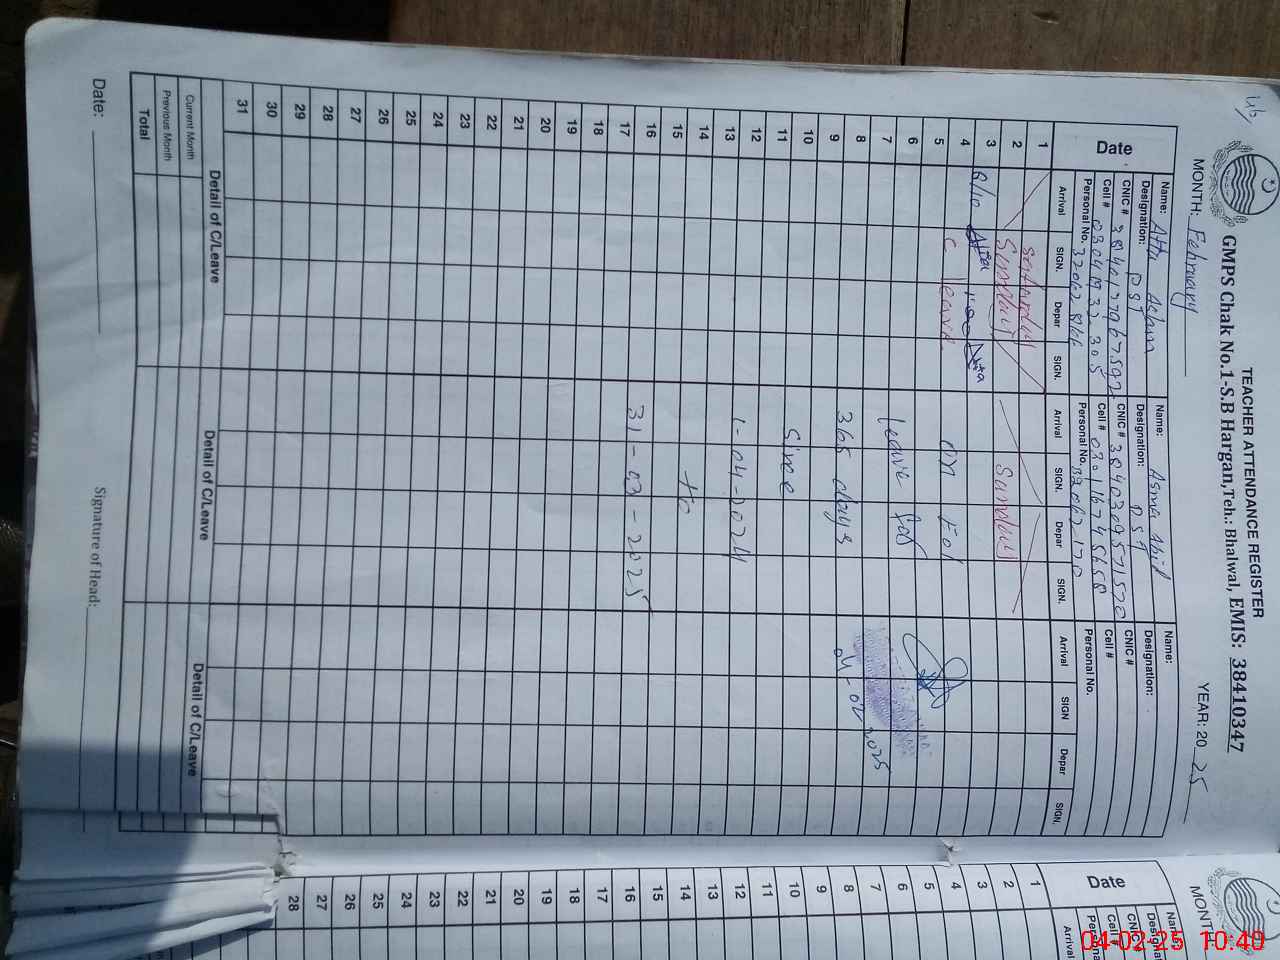 TEACHER ATTENDANCE REGISTER
GMPS Chak No.1-S.B Hargan,Teh.: Bhalwal, EMIS: 38410347
MONTH: February
YEAR: 2025
Date
Name: Atta Aslam
Designation: PST
CNIC #
Cell #
Personal No.
Name: Asma Abid
Designation: PST
CNIC #
Cell #
Personal No.
Name:
Designation:
CNIC #
Cell #
Personal No.
Arrival SIGN. Depar SIGN. Arrival SIGN. Depar SIGN. Arrival SIGN Depar SIGN.
1 Saturday
2 Sunday Sunday
3
4
5 C leave on
6
7 leave for
8
9 365 days
10
11 Since
12
13 1-04-2024
14
15 to
16
17 31-03-2025
18
19
20
21
22
23
24
25
26
27
28
29
30
31
Detail of C/Leave Detail of C/Leave Detail of C/Leave
Current Month
Previous Month
Total
Date:
Signature of Head:
MONTH:
Date
Name
CNIC
Cell #
Arrival
1
2
3
4
5
6
7
8
9
10
11
12
13
14
15
16
17
18
19
20
21
22
23
24
25
26
27
28
04-02-25 10:40